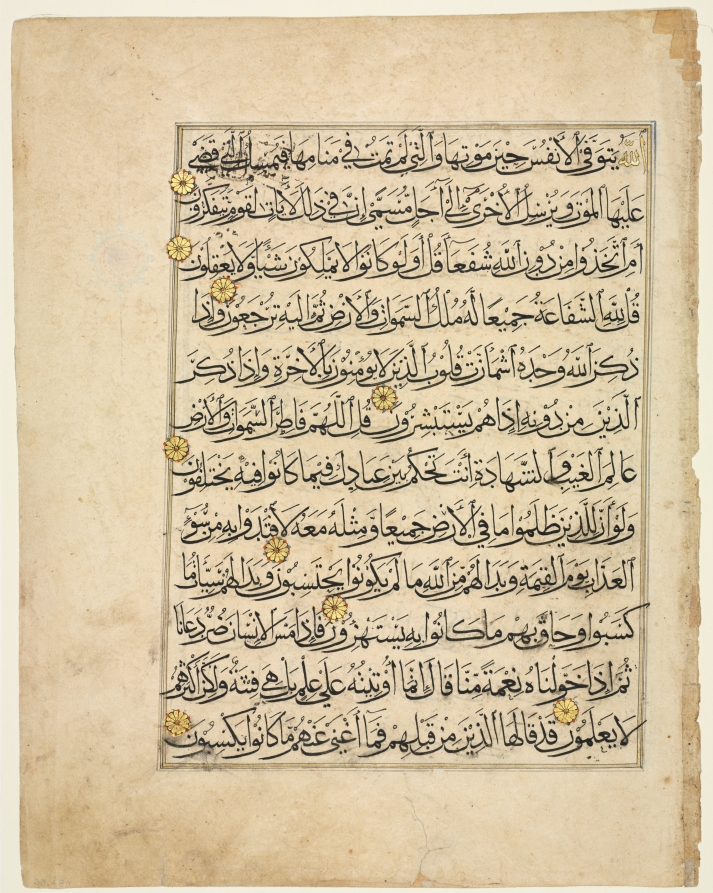 ٱللَّهُ يَتَوَفَّى ٱلْأَنْفُسَ حِينَ مَوْتِهَا وَٱلَّتِي لَمْ تَمُتْ فِي مَنَامِهَا فَيُمْسِكُ ٱلَّتِي قَضَىٰ
عَلَيْهَا ٱلْمَوْتَ وَيُرْسِلُ ٱلْأُخْرَىٰ إِلَىٰ أَجَلٍ مُسَمًّى إِنَّ فِي ذَٰلِكَ لَآيَاتٍ لِقَوْمٍ يَتَفَكَّرُونَ
أَمِ ٱتَّخَذُوا مِنْ دُونِ ٱللَّهِ شُفَعَاءَ قُلْ أَوَلَوْ كَانُوا لَا يَمْلِكُونَ شَيْئًا وَلَا يَعْقِلُونَ
قُلْ لِلَّهِ ٱلشَّفَاعَةُ جَمِيعًا لَهُ مُلْكُ ٱلسَّمَوَاتِ وَٱلْأَرْضِ ثُمَّ إِلَيْهِ تُرْجَعُونَ وَإِذَا
ذُكِرَ ٱللَّهُ وَحْدَهُ ٱشْمَأَزَّتْ قُلُوبُ ٱلَّذِينَ لَا يُؤْمِنُونَ بِٱلْآخِرَةِ وَإِذَا ذُكِرَ
ٱلَّذِينَ مِنْ دُونِهِ إِذَا هُمْ يَسْتَبْشِرُونَ قُلِ ٱللَّهُمَّ فَاطِرَ ٱلسَّمَوَاتِ وَٱلْأَرْضِ
عَالِمَ ٱلْغَيْبِ وَٱلشَّهَادَةِ أَنْتَ تَحْكُمُ بَيْنَ عِبَادِكَ فِيمَا كَانُوا فِيهِ يَخْتَلِفُونَ
وَلَوْ أَنَّ لِلَّذِينَ ظَلَمُوا مَا فِي ٱلْأَرْضِ جَمِيعًا وَمِثْلَهُ مَعَهُ لَافْتَدَوْا بِهِ مِنْ سُوءِ
ٱلْعَذَابِ يَوْمَ ٱلْقِيَمَةِ وَبَدَا لَهُمْ مِنَ ٱللَّهِ مَا لَمْ يَكُونُوا يَحْتَسِبُونَ وَبَدَا لَهُمْ سَيِّئَاتُ مَا
كَسَبُوا وَحَاقَ بِهِمْ مَا كَانُوا بِهِ يَسْتَهْزِؤُنَ فَإِذَا مَسَّ ٱلْإِنْسَانَ ضُرٌّ دَعَانَا
ثُمَّ إِذَا خَوَّلْنَاهُ نِعْمَةً مِنَّا قَالَ إِنَّمَا أُوتِيتُهُ عَلَىٰ عِلْمٍ بَلْ هِيَ فِتْنَةٌ وَلَٰكِنَّ أَكْثَرَهُمْ
لَا يَعْلَمُونَ قَدْ قَالَهَا ٱلَّذِينَ مِنْ قَبْلِهِمْ فَمَا أَغْنَىٰ عَنْهُمْ مَا كَانُوا يَكْسِبُونَ